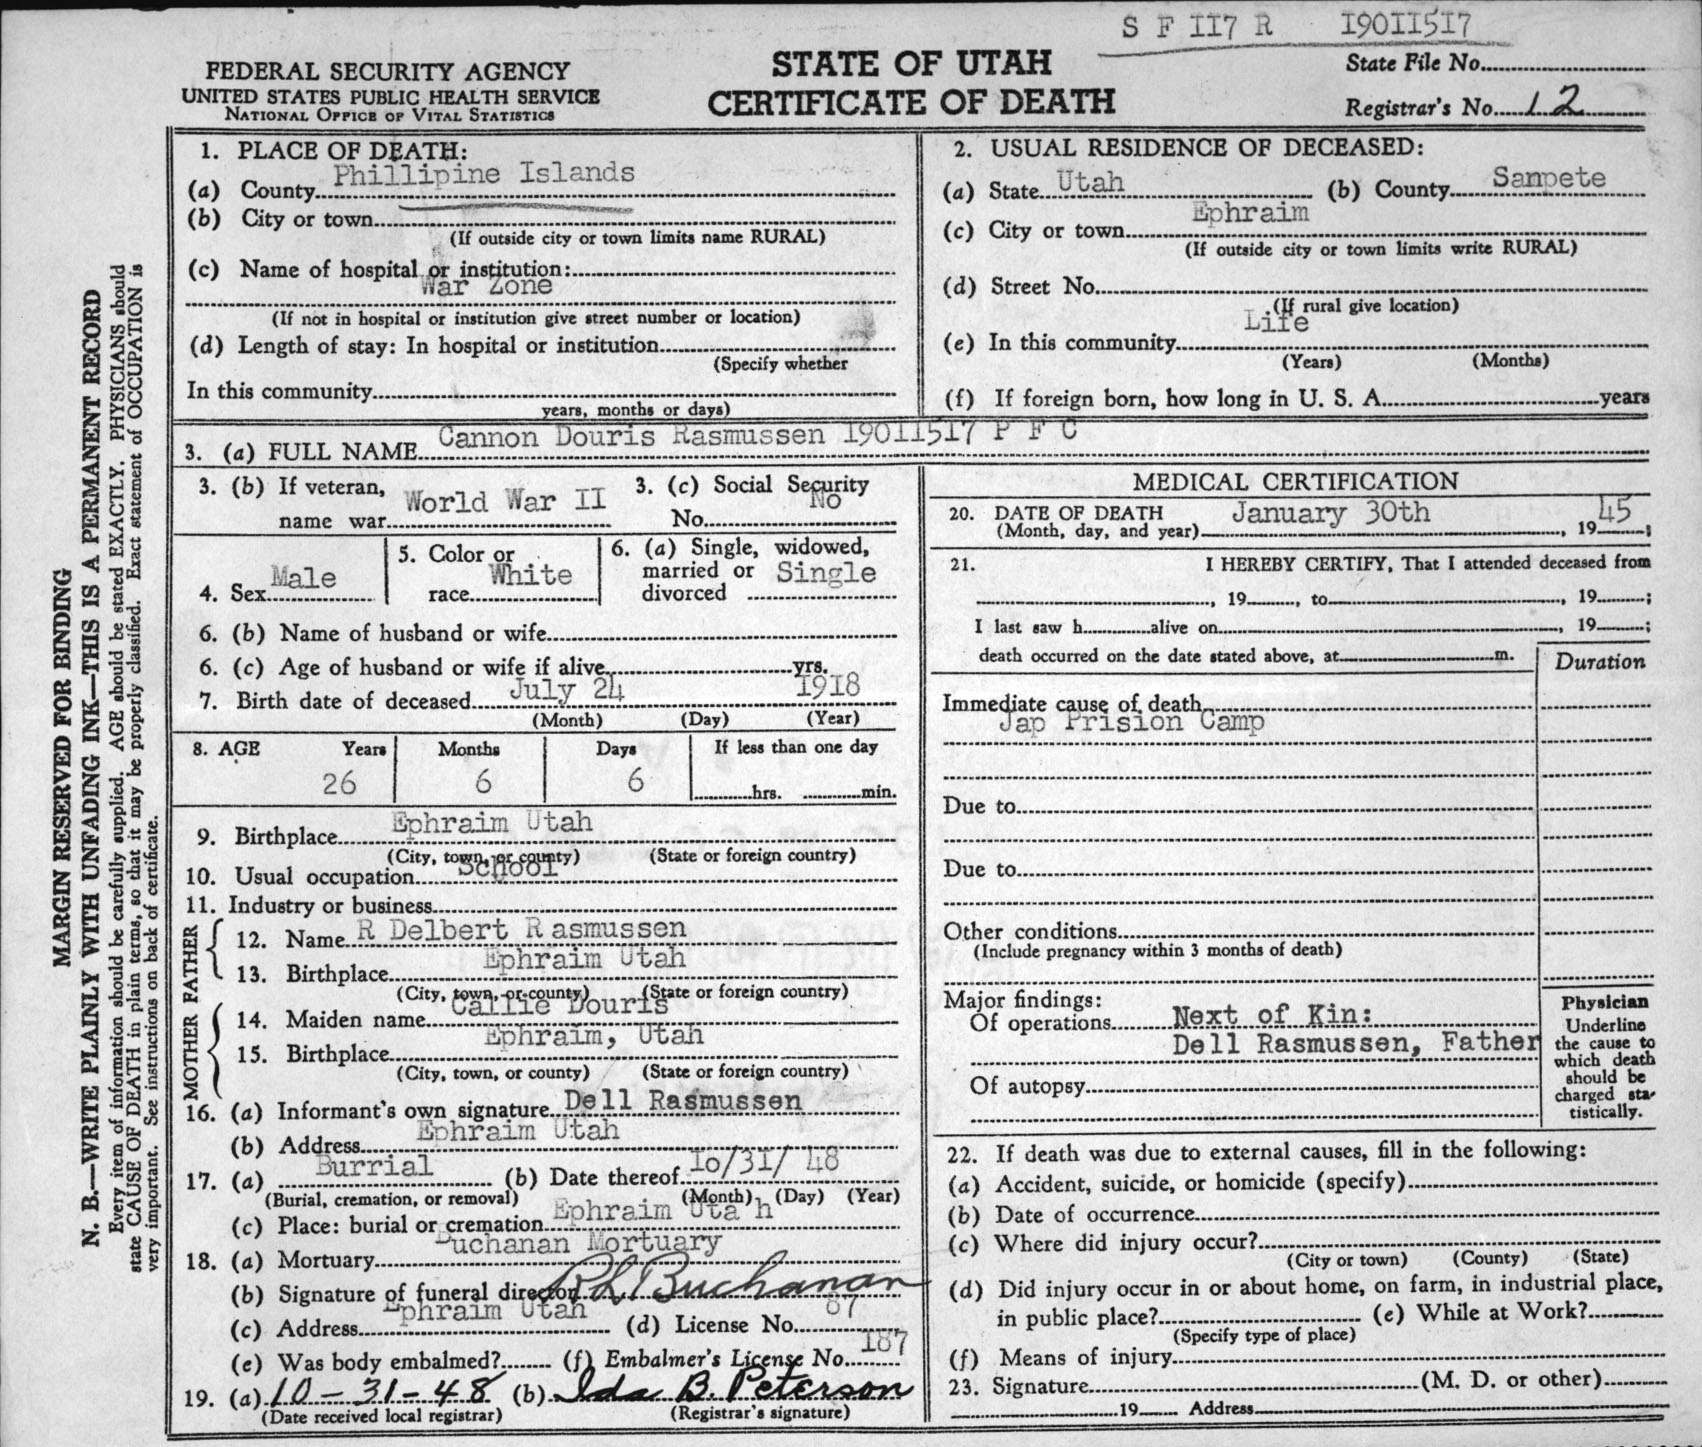 S F II7 R 190II5I7
FEDERAL SECURITY AGENCY
UNITED STATES PUBLIC HEALTH SERVICE
NATIONAL OFFICE OF VITAL STATISTICS
STATE OF UTAH
CERTIFICATE OF DEATH
State File No.
Registrar's No. 12
MARGIN RESERVED FOR BINDING
N. B.—WRITE PLAINLY WITH UNFADING INK—THIS IS A PERMANENT RECORD
Every item of information should be carefully supplied. AGE should be stated EXACTLY. PHYSICIANS should
state CAUSE OF DEATH in plain terms, so that it may be properly classified. Exact statement of OCCUPATION is
very important. See instructions on back of certificate.
1. PLACE OF DEATH:
(a) County Phillipine Islands
(b) City or town
(If outside city or town limits name RURAL)
(c) Name of hospital or institution:
War Zone
(If not in hospital or institution give street number or location)
(d) Length of stay: In hospital or institution
(Specify whether
In this community
years, months or days)
2. USUAL RESIDENCE OF DECEASED:
(a) State Utah (b) County Sanpete
(c) City or town Ephraim
(If outside city or town limits write RURAL)
(d) Street No.
(If rural give location)
(e) In this community Life
(Years) (Months)
(f) If foreign born, how long in U. S. A. years
3. (a) FULL NAME Cannon Douris Rasmussen I90II5I7 P F C
3. (b) If veteran, name war World War II
3. (c) Social Security No. No
4. Sex Male
5. Color or race White
6. (a) Single, widowed, married or divorced Single
6. (b) Name of husband or wife
6. (c) Age of husband or wife if alive yrs.
7. Birth date of deceased July 24 I9I8
(Month) (Day) (Year)
8. AGE Years Months Days If less than one day
26 6 6 hrs. min.
9. Birthplace Ephraim Utah
(City, town, or county) (State or foreign country)
10. Usual occupation School
11. Industry or business
FATHER
12. Name R Delbert R asmussen
13. Birthplace Ephraim Utah
(City, town, or county) (State or foreign country)
MOTHER
14. Maiden name Callie Douris
15. Birthplace Ephraim, Utah
(City, town, or county) (State or foreign country)
16. (a) Informant's own signature Dell Rasmussen
(b) Address Ephraim Utah
17. (a) Burrial (b) Date thereof Io/3I/ 48
(Burial, cremation, or removal) (Month) (Day) (Year)
(c) Place: burial or cremation Ephraim Uta h
18. (a) Mortuary Buchanan Mortuary
(b) Signature of funeral director Buchanan
(c) Address Ephraim Utah (d) License No. 87
(e) Was body embalmed? (f) Embalmer's License No. I87
19. (a) 10-31-48 (b) Ida B. Peterson
(Date received local registrar) (Registrar's signature)
MEDICAL CERTIFICATION
20. DATE OF DEATH
(Month, day, and year) January 30th, 19 45;
21. I HEREBY CERTIFY, That I attended deceased from
, 19 , to , 19 ;
I last saw h alive on , 19 ;
death occurred on the date stated above, at m.
Duration
Immediate cause of death
Jap Prision Camp
Due to
Due to
Other conditions
(Include pregnancy within 3 months of death)
Major findings:
Of operations Next of Kin:
Dell Rasmussen, Father
Of autopsy
Physician
Underline
the cause to
which death
should be
charged sta-
tistically.
22. If death was due to external causes, fill in the following:
(a) Accident, suicide, or homicide (specify)
(b) Date of occurrence
(c) Where did injury occur?
(City or town) (County) (State)
(d) Did injury occur in or about home, on farm, in industrial place,
in public place? (e) While at Work?
(Specify type of place)
(f) Means of injury
23. Signature (M. D. or other)
19 Address